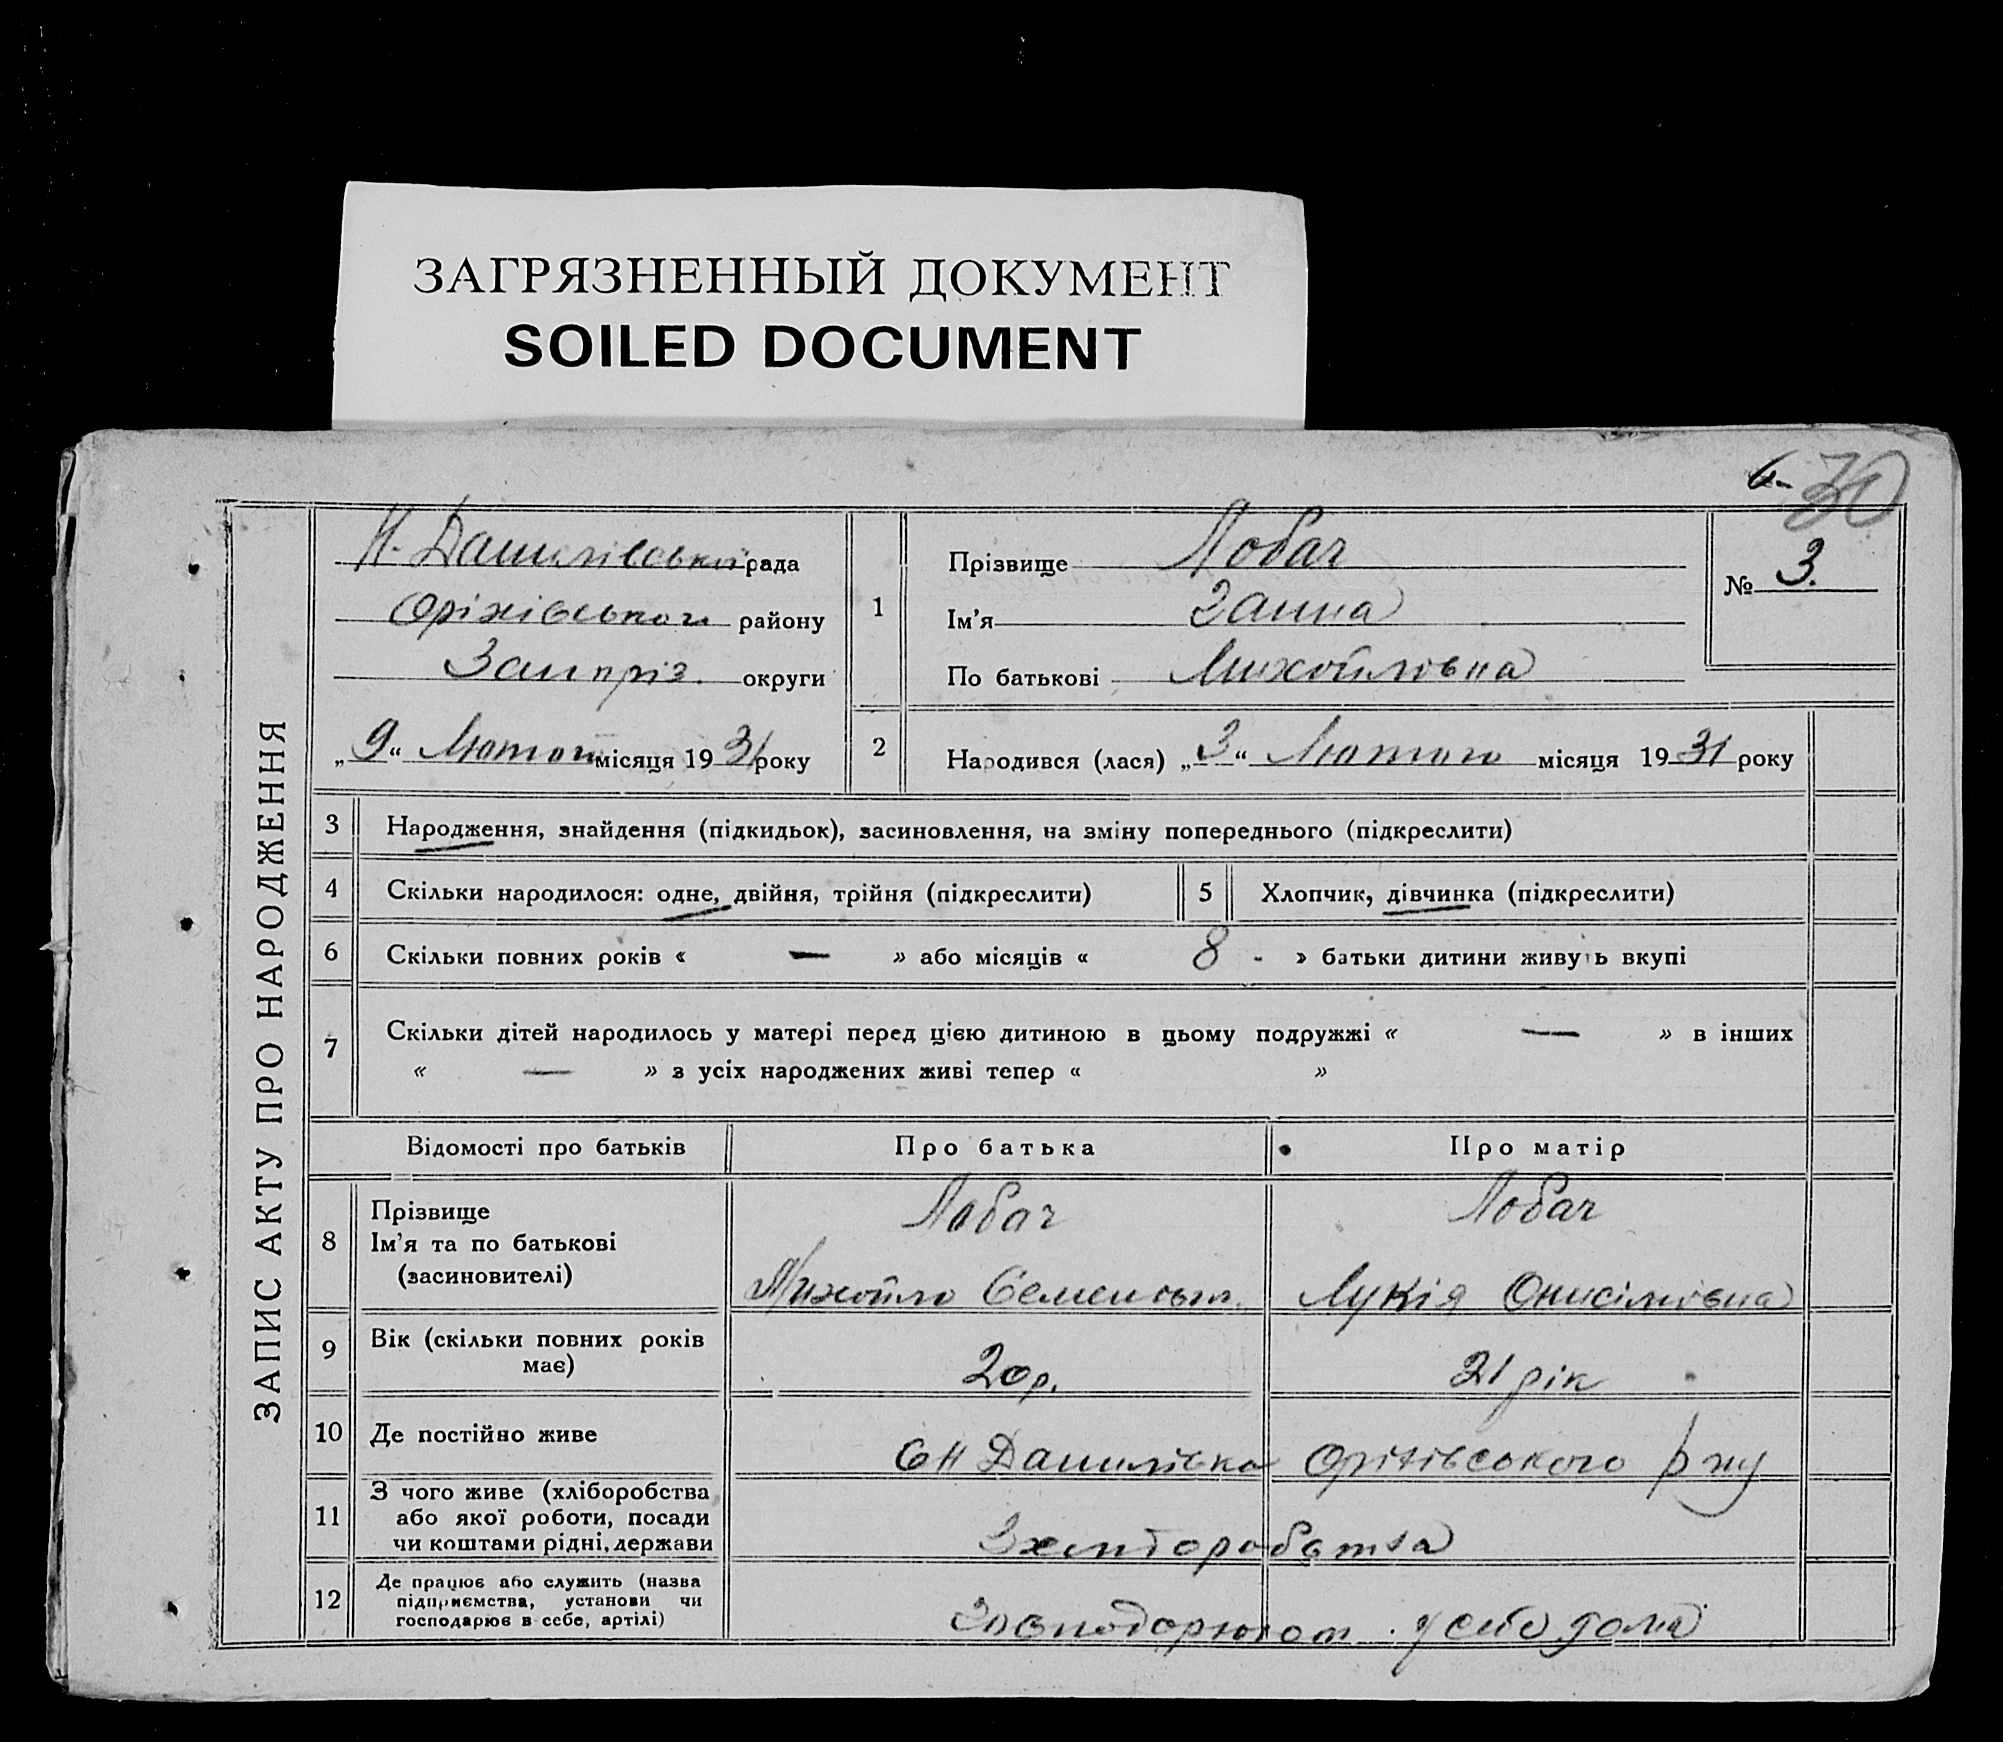 ЗАГРЯЗНЕННЫЙ ДОКУМЕНТ
SOILED DOCUMENT
30
ЗАПИС АКТУ ПРО НАРОДЖЕННЯ
Н-Данилівської рада
Оріхівського району
Запріз. округи
„9“ Лютого місяця 1931 року
1
Прізвище Лобач
Ім'я Ганна
По батькові Михойловна
№ 3.
2
Народився (лася) „3“ Лютого місяця 1931 року
3 Народження, знайдення (підкидьок), засиновлення, на зміну попереднього (підкреслити)
4 Скільки народилося: одне, двійня, трійня (підкреслити)
5 Хлопчик, дівчинка (підкреслити)
6 Скільки повних років « — » або місяців « 8 - » батьки дитини живуть вкупі
7 Скільки дітей народилось у матері перед цією дитиною в цьому подружжі « — » в інших
« — » з усіх народжених живі тепер « »
Відомості про батьків Про батька Про матір
8 Прізвище
Ім'я та по батькові
(засиновителі)
Лобач
Михойло Семенович
Лобач
Лукія Онисімовна
9 Вік (скільки повних років
має)
20 р.
21 рік
10 Де постійно живе
с Н Данилівка Оріхівського р ну
11 З чого живе (хліборобства
або якої роботи, посади
чи коштами рідні, держави
З хліборобства
12 Де працює або служить (назва
підприємства, установи чи
господарює в себе, артілі)